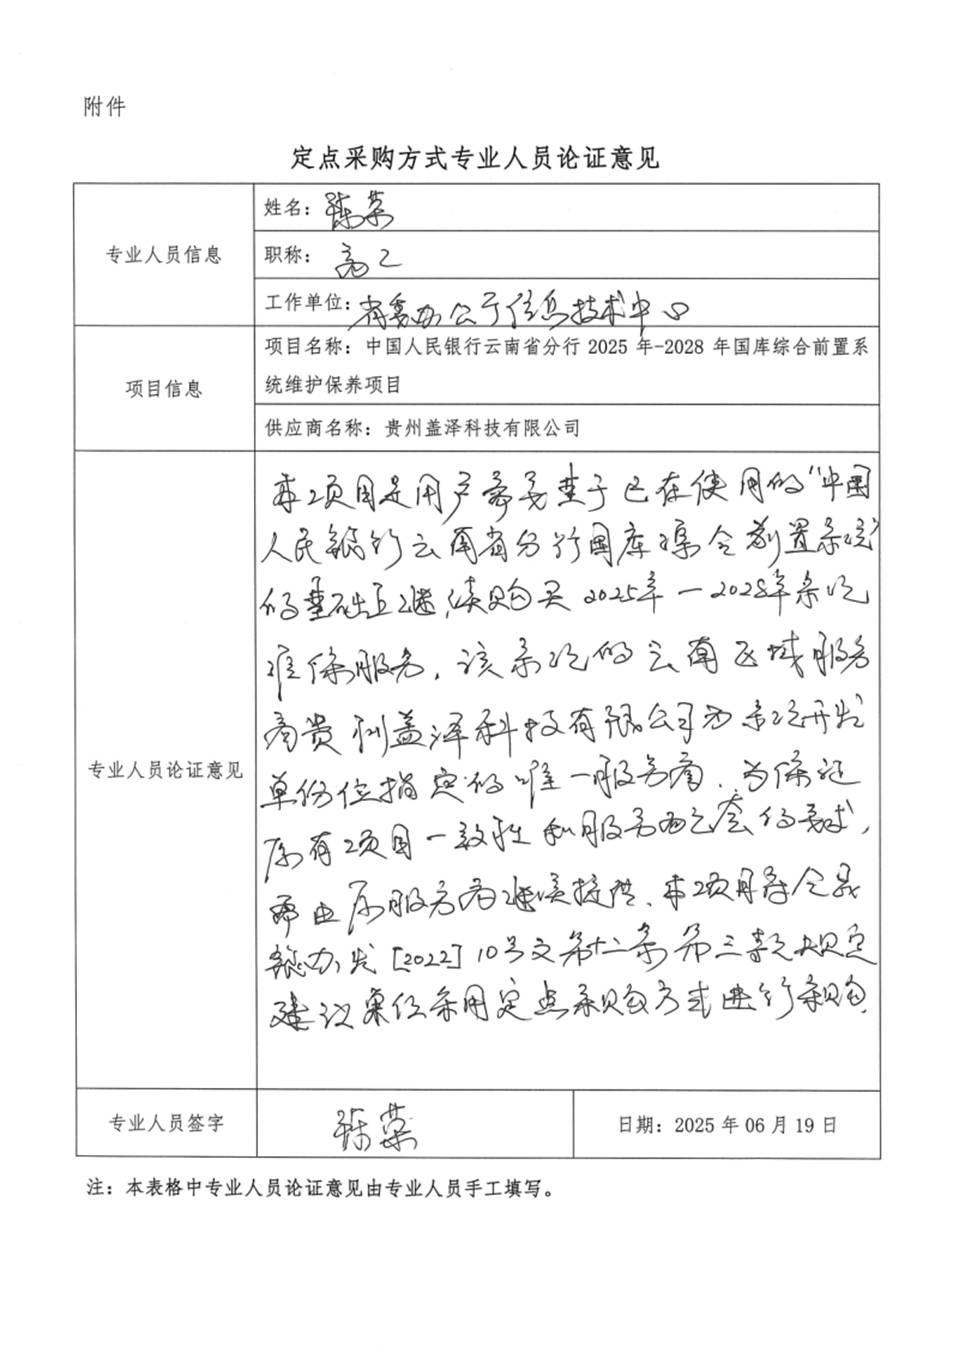 附件
定点采购方式专业人员论证意见
专业人员信息
姓名：陈荣
职称：高工
工作单位：省委办公厅信息技术中心
项目信息
项目名称：中国人民银行云南省分行 2025 年-2028 年国库综合前置系
统维护保养项目
供应商名称：贵州盖泽科技有限公司
专业人员论证意见
本项目是用户需要基于已在使用的“中国
人民银行云南省分行国库综合前置系统”
的基础上继续购买2025年—2028年系统
维保服务，该系统的云南区域服务
商贵州盖泽科技有限公司为系统开发
单位指定的唯一服务商，为保证
原有项目一致性和服务配套的要求，
需由原服务商继续提供，本项目符合
办发[2022]10号文第十二条第三款规定
建议单位采用定点采购方式进行采购。
专业人员签字
陈荣
日期：2025 年 06 月 19 日
注：本表格中专业人员论证意见由专业人员手工填写。